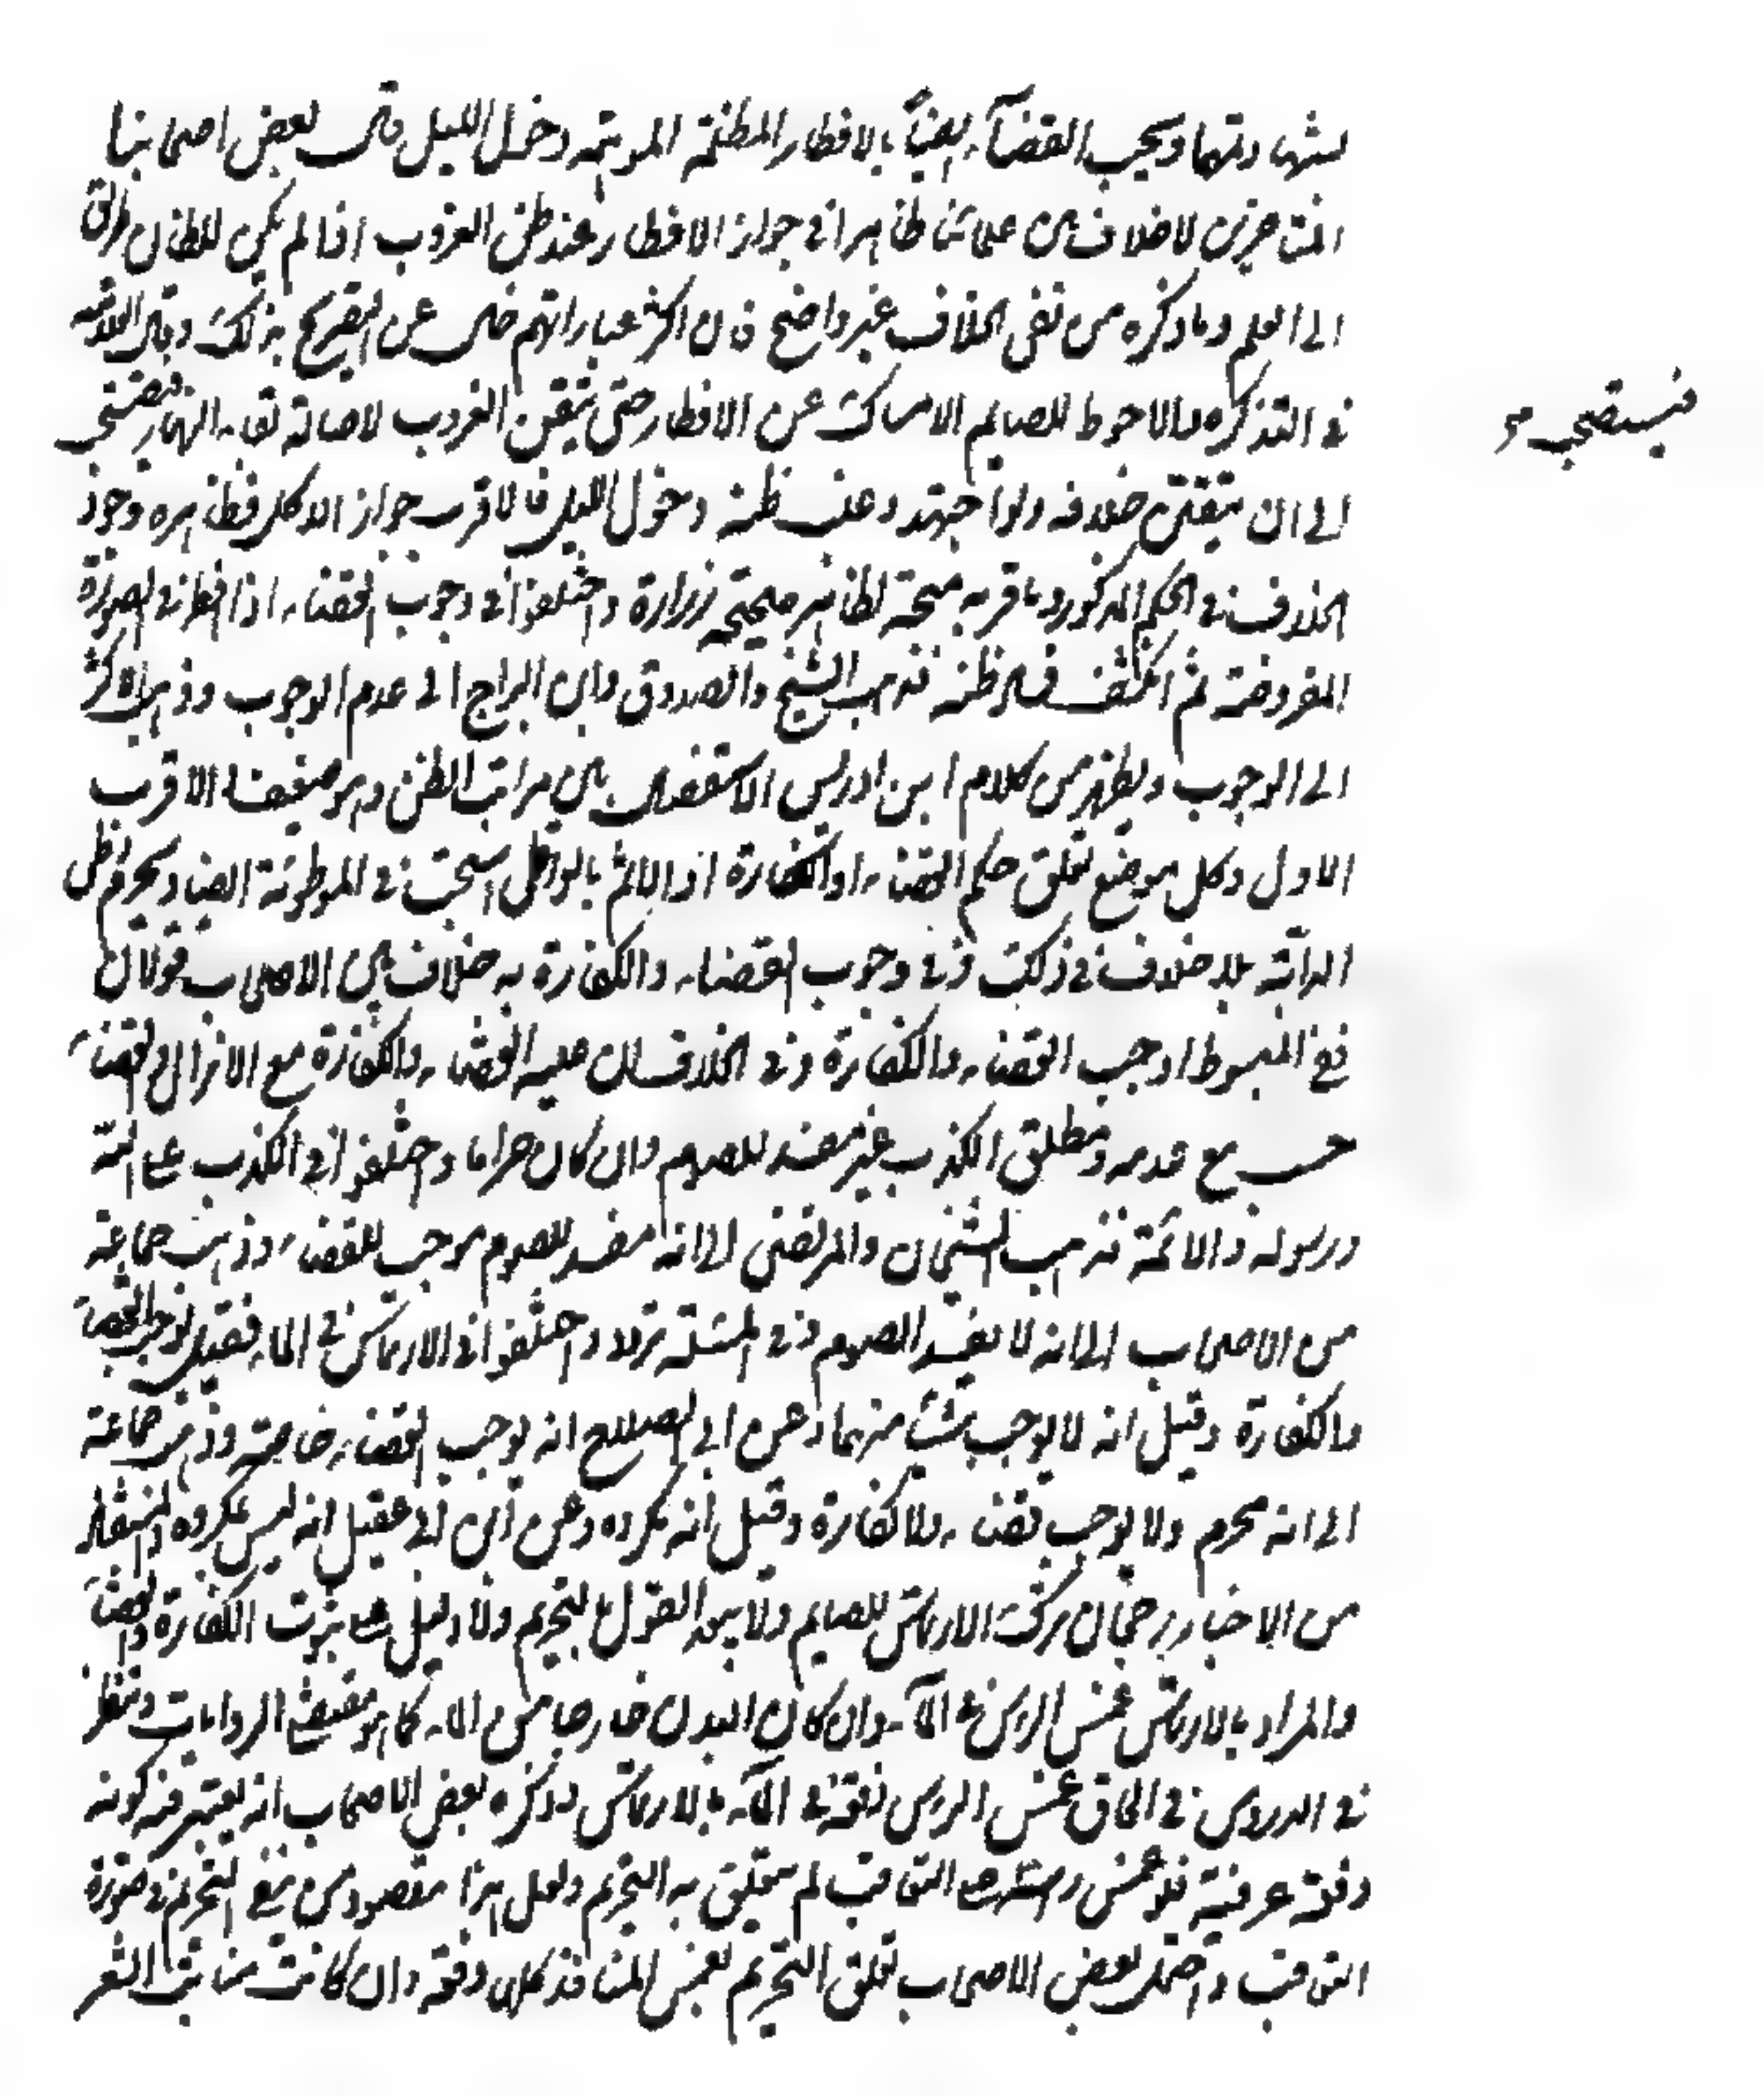 بشهادتهما ويجب القضاء ايضاً بالافطار للظلمة الموهمة دخول الليل قال بعض اصحابنا
المتاخرين لا خلاف بين علمائنا ظاهرا في جواز الافطار عند ظن الغروب اذا لم يكن للظان طريق
الى العلم وما ذكره من نفى الخلاف غير واضح فان اكثر عباراتهم خال عن التصريح بذلك وقال العلامة
في التذكرة والاحوط للصايم الامساك عن الافطار حتى يتيقن الغروب لاصالة بقاء النهار فيستصحب
فيستصحب
الى ان يتيقن خلافه ولو اجتهد وغلب ظنه دخول الليل فالاقرب جواز الاكل فظاهره وجود
الخلاف في الحكم المذكور وما قربه متجه لظاهر صحيحة زرارة واختلفوا في وجوب القضاء اذا افطر في الصورة
المفروضة ثم انكشف فساد ظنه فذهب الشيخ والصدوق وابن البراج الى عدم الوجوب وذهب الاكثر
الى الوجوب ويظهر من كلام ابن ادريس الاستفصال بين مراتب الظن وهو ضعيف والاقرب
الاول وكل موضع تعلق حكم القضاء او الكفارة او الاثم بالواطى استحق في الموطوئة ايضا ويحرم وطى
الدابة بلا خلاف في ذلك وفي وجوب القضاء والكفارة به خلاف بين الاصحاب قولان
ففي المبسوط اوجب القضاء والكفارة وفي الخلاف ان عليه القضاء والكفارة مع الانزال والقضاء
حسب مع عدمه ومطلق الكذب غير مفسد للصوم وان كان حراما واختلفوا في الكذب على الله
ورسوله والائمة فذهب الشيخان والمرتضى الى انه مفسد للصوم موجب للقضاء وذهب جماعة
من الاصحاب الى انه لا يفسد الصوم وفي المسئلة تردد واختلفوا في الارتماس في الماء فقيل يوجب القضاء
والكفارة وقيل انه لا يوجب شيئا منهما وعن ابي الصلاح انه يوجب القضاء خاصة وذهب جماعة
الى انه محرم ولا يوجب قضاء ولا كفارة وقيل انه مكروه وعن ابن ابي عقيل انه ليس بمكروه والمستفاد
من الاخبار رجحان ترك الارتماس للصايم ولا يبعد القول بالتحريم ولا دليل على ثبوت الكفارة والقضاء
والمراد بالارتماس غمس الراس في الماء وان كان البدن خارجا من الماء كما هو مقتضى الروايات وتنظر
في الدروس في الحاق غمس الراس دفعة في الماء بالارتماس وذكره بعض الاصحاب انه يعتبر فيه كونه
دفعة عرفية فلو غمس راسه على التعاقب لم يتعلق به التحريم ولعل هذا مقصود من نفى التحريم في صورة
التعاقب واحتمل بعض الاصحاب تعلق التحريم بغمس المنافذ كلها دفعة وان كانت منابت الشعر